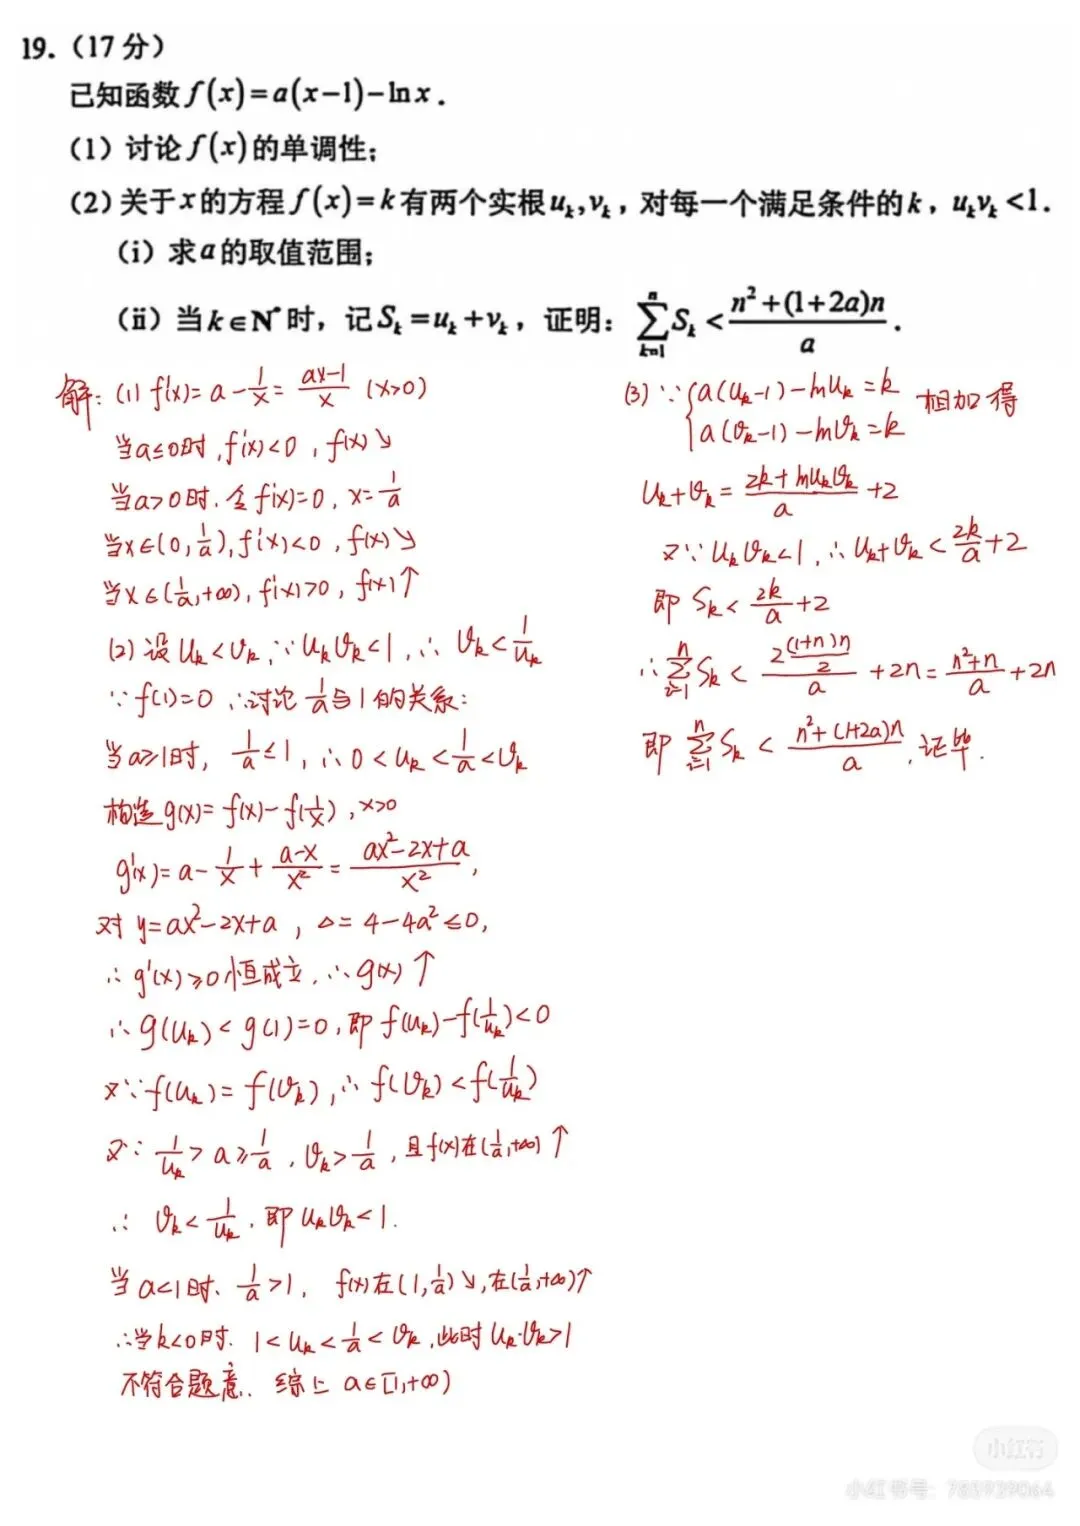 19.（17分）
已知函数 f(x)=a(x−1)−ln x .
（1）讨论 f(x) 的单调性；
（2）关于 x 的方程 f(x)=k 有两个实根 uₖ,vₖ，对每一个满足条件的 k，uₖvₖ<1.
（i）求 a 的取值范围；
（ii）当 k∈N* 时，记 Sₖ=uₖ+vₖ，证明：∑_{k=1}^{n} Sₖ < (n²+(1+2a)n)/a .
解: (1) f'(x)= a − 1/x = (ax−1)/x (x>0)
当a≤0时, f'(x)<0, f(x)↘
当a>0时. 令f'(x)=0, x=1/a
当x∈(0, 1/a), f'(x)<0, f(x)↘
当x∈(1/a,+∞), f'(x)>0, f(x)↑
(2) 设 uₖ<vₖ, ∵uₖvₖ<1, ∴ vₖ<1/uₖ
∵ f(1)=0 ∴讨论 1/a 与1的关系:
当a≥1时, 1/a≤1, ∴0<uₖ<1/a<vₖ
构造g(x)= f(x)−f(1/x), x>0
g'(x)= a − 1/x + (a−x)/x² = (ax²−2x+a)/x²,
对 y=ax²−2x+a, Δ= 4−4a²≤0,
∴ g'(x)≥0恒成立. ∴g(x)↑
∴g(uₖ)<g(1)=0, 即 f(uₖ)−f(1/uₖ)<0
又∵f(uₖ)= f(vₖ), ∴ f(vₖ)<f(1/uₖ)
又∵ 1/uₖ>a≥1/a, vₖ>1/a, 且f(x)在(1/a,+∞)↑
∴ vₖ<1/uₖ. 即 uₖvₖ<1.
当a<1时. 1/a>1, f(x)在(1,1/a)↘, 在(1/a,+∞)↑
∴当k<0时. 1<uₖ<1/a<vₖ, 此时uₖ·vₖ>1
不符合题意. 综上 a∈[1,+∞)
(3) ∵{a(uₖ−1)−lnuₖ=k
a(vₖ−1)−lnvₖ=k 相加得
uₖ+vₖ= (2k+lnuₖvₖ)/a +2
又∵uₖvₖ<1, ∴uₖ+vₖ< 2k/a +2
即 Sₖ< 2k/a +2
∴ ∑_{i=1}^{n} Sₖ < (2·(1+n)n/2)/a +2n= (n²+n)/a +2n
即 ∑_{i=1}^{n} Sₖ < (n²+(1+2a)n)/a, 证毕.
小红书
小红书号: 783939064